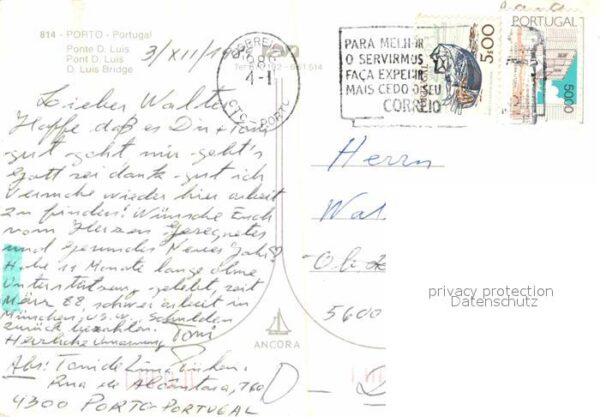 814 - PORTO - Portugal
Ponte D. Luis
Pont D. Luis
D. Luis Bridge
3/XII/198
PARA MELHOR
O SERVIRMOS
FAÇA EXPEDIR
MAIS CEDO O SEU
CORREIO
5$00
PORTUGAL
5000
CTC - PORTO
Lieber Walter
Hoffe daß es Dir + Toni
gut geht, mir geht's
Gott sei dank gut ich
versuche wieder hier arbeit
zu finden! Wünsche Euch
vom Herzen Gesegnetes
und gesundes Neues Jahr
Habe 11 Monate lange ohne
Unterstützung gelebt, seit
März 88, schwei arbeit in
München, u.s.w. Schulden
zurück bezahlen.
Herzliche Umarmung Toni
Abs: Toni de Lima
Rua de Alcântara, 760
4300 PORTO-PORTUGAL
ANCORA
D
Herrn
Wal
5600
privacy protection
Datenschutz